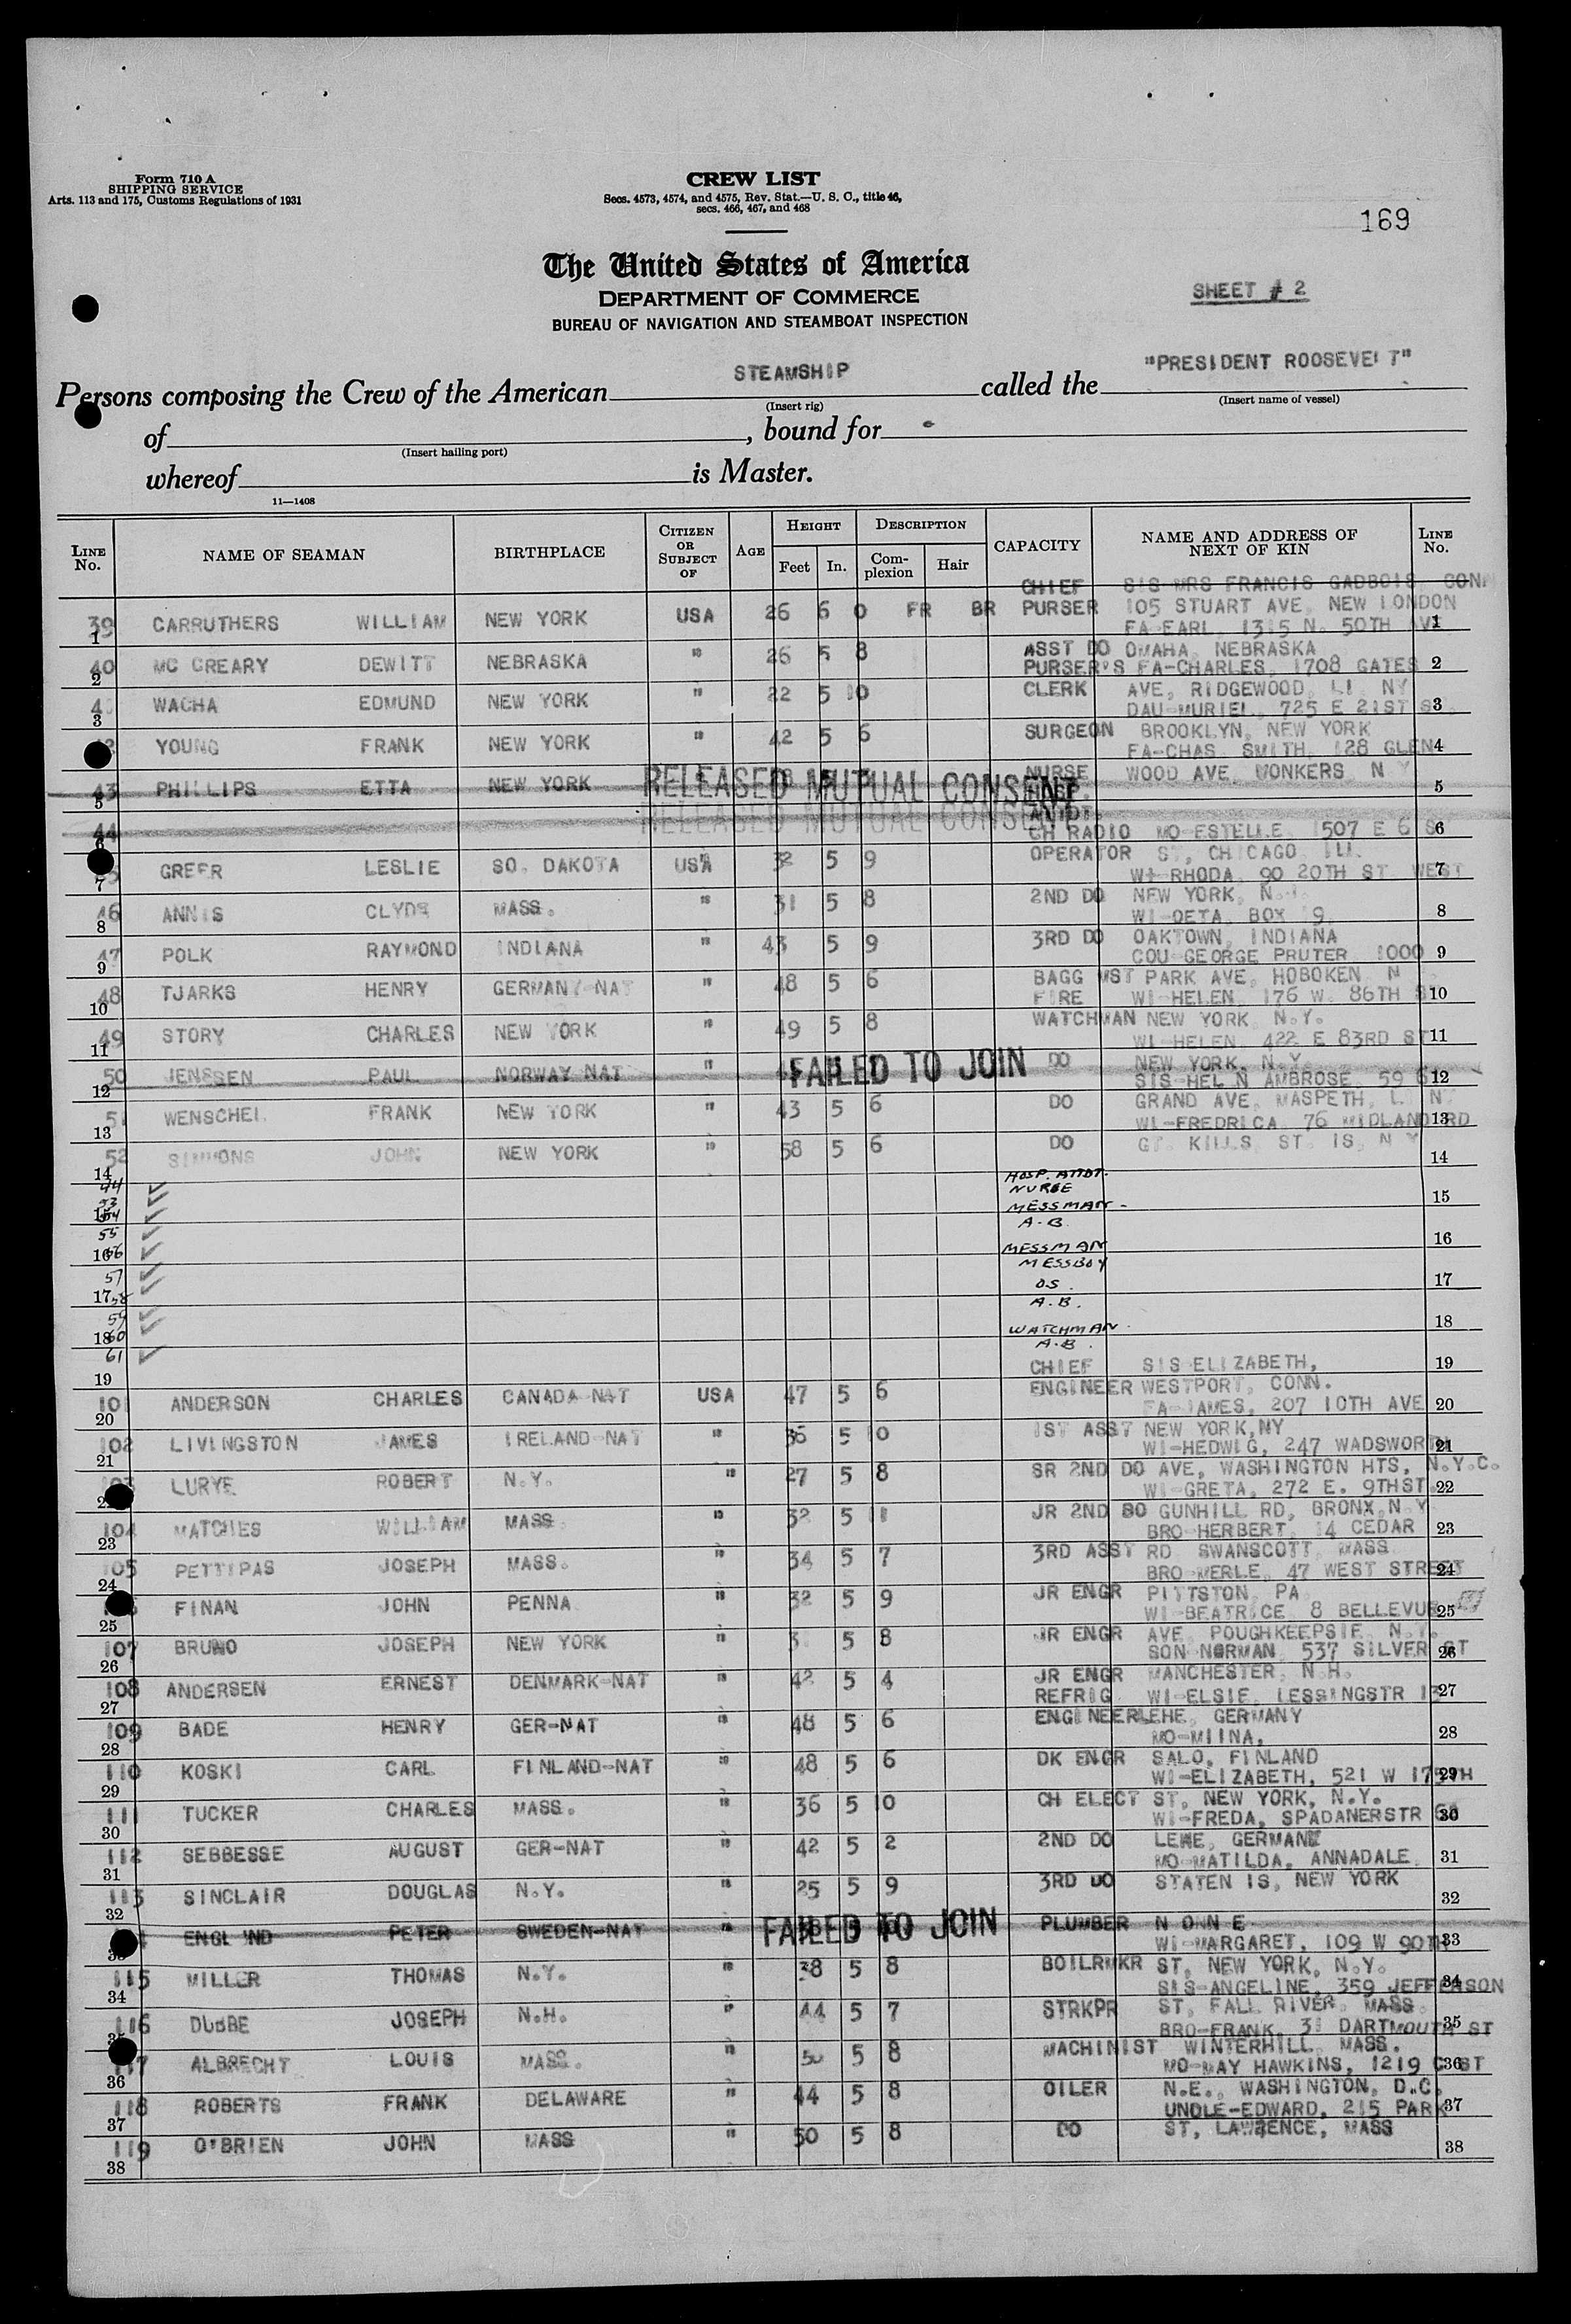 Form 710 A
SHIPPING SERVICE
Arts. 113 and 175, Customs Regulations of 1931
CREW LIST
Secs. 4573, 4574, and 4575, Rev. Stat.—U. S. C., title 46,
secs. 466, 467, and 468
169
The United States of America
DEPARTMENT OF COMMERCE
BUREAU OF NAVIGATION AND STEAMBOAT INSPECTION
SHEET # 2
Persons composing the Crew of the American STEAMSHIP called the "PRESIDENT ROOSEVELT"
(Insert rig) (Insert name of vessel)
of , bound for
(Insert hailing port)
whereof is Master.
11—1408
LINE No. NAME OF SEAMAN BIRTHPLACE CITIZEN OR SUBJECT OF AGE HEIGHT Feet In. DESCRIPTION Complexion Hair CAPACITY NAME AND ADDRESS OF NEXT OF KIN LINE No.
CHIEF SIS MRS FRANCIS GADBOIS CONN
39 CARRUTHERS WILLIAM NEW YORK USA 26 6 0 FR BR PURSER 105 STUART AVE, NEW LONDON
1 FA-EARL, 1315 N. 50TH AVE 1
40 MC CREARY DEWITT NEBRASKA " 26 5 8 ASST DO OMAHA, NEBRASKA
2 PURSER'S FA-CHARLES, 1708 GATES 2
WACHA EDMUND NEW YORK " 22 5 10 CLERK AVE, RIDGEWOOD, LI NY
3 DAU-MURIEL, 725 E 21ST 3
YOUNG FRANK NEW YORK " 42 5 6 SURGEON BROOKLYN, NEW YORK
FA-CHAS SMITH, 128 GLEN 4
43 PHILLIPS ETTA NEW YORK RELEASED MUTUAL CONSENT NURSE WOOD AVE, YONKERS N Y
5 HOSP. 5
44 RELEASED MUTUAL CONSENT ATTDT.
6 CH RADIO MO-ESTELLE 1507 E 6 6
GREER LESLIE SO. DAKOTA USA 32 5 9 OPERATOR ST, CHICAGO ILL.
7 WI-RHODA, 90 20TH ST WEST 7
46 ANNIS CLYDE MASS. " 31 5 8 2ND DO NEW YORK, N.Y.
8 BOX 8
47 POLK RAYMOND INDIANA " 43 5 9 3RD DO OAKTOWN, INDIANA
9 COU-GEORGE PRUTER 1000 9
48 TJARKS HENRY GERMANY-NAT " 48 5 6 BAGG MST PARK AVE, HOBOKEN N
10 FIRE WI-HELEN, 176 W. 86TH 10
49 STORY CHARLES NEW YORK " 49 5 8 WATCHMAN NEW YORK N.Y.
11 WI-HELEN 422 E 83RD ST 11
50 JENSSEN PAUL NORWAY NAT " FAILED TO JOIN DO NEW YORK, N.Y.
12 SIS-HELEN AMBROSE, 59 12
51 WENSCHEL FRANK NEW YORK " 43 5 6 DO GRAND AVE, MASPETH, L. N
13 WI-FREDRICA 76 MIDLAND RD 13
52 SIMMONS JOHN NEW YORK " 58 5 6 DO GT. KILLS ST. IS, N Y
14 14
44 HOSP. ATTDT.
53 NURSE
15 54 MESSMAN 15
55 A.B.
16 56 MESSMAN 16
57 MESSBOY
17 58 O.S. 17
59 A.B.
18 60 WATCHMAN 18
61 A.B.
19 CHIEF SIS-ELIZABETH, 19
101 ANDERSON CHARLES CANADA-NAT USA 47 5 6 ENGINEER WESTPORT, CONN.
20 FA-JAMES, 207 10TH AVE 20
102 LIVINGSTON JAMES IRELAND-NAT " 36 5 10 1ST ASST NEW YORK, NY
21 WI-HEDWIG, 247 WADSWORTH 21
103 LURYE ROBERT N.Y. " 27 5 8 SR 2ND DO AVE, WASHINGTON HTS, N.Y.C.
WI-GRETA, 272 E. 9THST 22
104 MATCHES WILLIAM MASS " 32 5 11 JR 2ND DO GUNHILL RD, BRONX, N.Y
23 BRO-HERBERT, 14 CEDAR 23
105 PETTIPAS JOSEPH MASS. " 34 5 7 3RD ASST RD SWANSCOTT, MASS
24 BRO-MERLE, 47 WEST STREET 24
FINAN JOHN PENNA " 32 5 9 JR ENGR PITTSTON, PA
25 WI-BEATRICE 8 BELLEVUE 25
107 BRUNO JOSEPH NEW YORK " 5 8 JR ENGR AVE, POUGHKEEPSIE, N.Y.
26 SON-NORMAN, 537 SILVER ST 26
108 ANDERSEN ERNEST DENMARK-NAT " 42 5 4 JR ENGR MANCHESTER, N.H.
27 REFRIG WI-ELSIE, LESSINGSTR 27
109 BADE HENRY GER-NAT " 48 5 6 ENGINEER LEHE, GERMANY
28 MO-MIINA, 28
110 KOSKI CARL FINLAND-NAT " 48 5 6 DK ENGR SALO, FINLAND
29 WI-ELIZABETH, 521 W 175TH 29
111 TUCKER CHARLES MASS. " 36 5 10 CH ELECT ST, NEW YORK, N.Y.
30 WI-FREDA, SPADANERSTR 30
112 SEBBESSE AUGUST GER-NAT " 42 5 2 2ND DO LEHE, GERMANY
31 MO-MATILDA, ANNADALE 31
113 SINCLAIR DOUGLAS N.Y. " 25 5 9 3RD DO STATEN IS, NEW YORK
32 32
ENGLUND PETER SWEDEN-NAT " FAILED TO JOIN PLUMBER N O N E
WI-MARGARET, 109 W 90TH 33
115 MILLER THOMAS N.Y. " 38 5 8 BOILRMKR ST, NEW YORK, N.Y.
34 SIS-ANGELINE, 359 JEFFERSON 34
116 DUBBE JOSEPH N.H. " 44 5 7 STRKPR ST, FALL RIVER, MASS.
35 BRO-FRANK, 31 DARTMOUTH ST 35
117 ALBRECHT LOUIS MASS. " 50 5 8 MACHINIST WINTERHILL, MASS.
36 MO-MAY HAWKINS, 1219 C ST 36
118 ROBERTS FRANK DELAWARE " 44 5 8 OILER N.E., WASHINGTON, D.C.
37 UNCLE-EDWARD, 215 PARK 37
119 O'BRIEN JOHN MASS " 50 5 8 DO ST, LAWRENCE, MASS
38 38